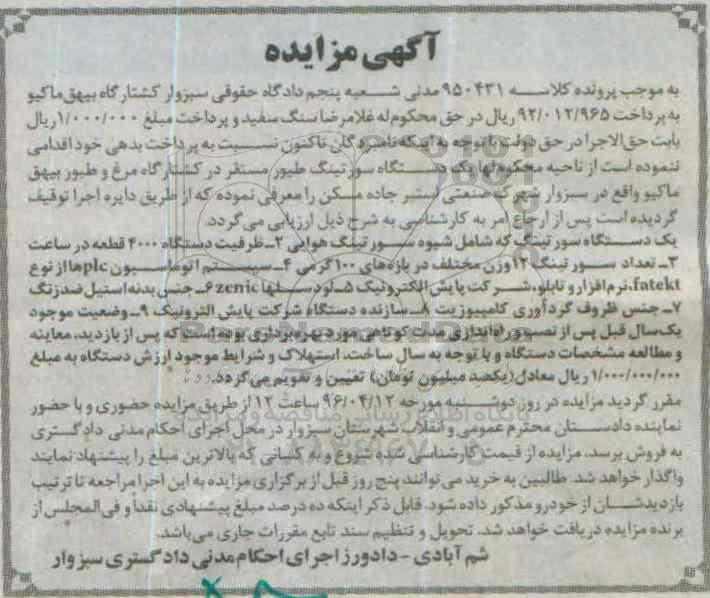 آگهی مزایده
به موجب پرونده کلاسه ۹۵۰۴۳۱ مدنی شعبه پنجم دادگاه حقوقی سبزوار کشتارگاه بیهق ماکیو
به پرداخت ۹۲/۰۱۲/۹۶۵ ریال در حق محکوم‌له غلامرضا سنگ سفید و پرداخت مبلغ ۱/۰۰۰/۰۰۰ ریال
بابت حق‌الاجرا در حق دولت با توجه به اینکه نامبردگان تاکنون نسبت به پرداخت بدهی خود اقدامی
ننموده است از ناحیه محکوم‌لها یک دستگاه سورتینگ طیور مستقر در کشتارگاه مرغ و طیور بیهق
ماکیو واقع در سبزوار شهرک صنعتی جاده مسکن را معرفی نموده که از طریق دایره اجرا توقیف
گردیده است پس از ارجاع امر به کارشناسی به شرح ذیل ارزیابی می‌گردد.
یک دستگاه سورتینگ که شامل شیوه سورتینگ هوایی ۲ـ ظرفیت دستگاه ۴۰۰۰ قطعه در ساعت
۳ـ تعداد سورتینگ ۱۲ وزن مختلف در بازه‌های ۱۰۰ گرمی ۴ـ سیستم اتوماسیون plcها از نوع
fatekt، نرم‌افزار و تابلو، شرکت پایش الکترونیک ۵ـ لودسلها zenic ۶ـ جنس بدنه استیل ضدزنگ
۷ـ جنس ظروف گردآوری کامپوزیت ۸ـ سازنده دستگاه شرکت پایش الترونیک ۹ـ وضعیت موجود
یک‌سال قبل پس از نصب و راه‌اندازی مدت کوتاهی مورد بهره‌برداری بوده است که پس از بازدید، معاینه
و مطالعه مشخصات دستگاه و با توجه به سال ساخت، استهلاک و شرایط موجود ارزش دستگاه به مبلغ
۱/۰۰۰/۰۰۰/۰۰۰ ریال معادل (یکصد میلیون تومان) تعیین و تقویم می‌گردد.
مقرر گردید مزایده در روز دوشنبه مورخه ۹۶/۰۴/۱۲ ساعت ۱۲ از طریق مزایده حضوری و با حضور
نماینده دادستان محترم عمومی و انقلاب شهرستان سبزوار در محل اجرای احکام مدنی دادگستری
به فروش برسد. مزایده از قیمت کارشناسی شده شروع و به کسانی که بالاترین مبلغ را پیشنهاد نمایند
واگذار خواهد شد. طالبین به خرید می‌توانند پنج روز قبل از برگزاری مزایده به این اجرا مراجعه تا ترتیب
بازدیدشان از خودرو مذکور داده شود. قابل ذکر اینکه ده درصد مبلغ پیشنهادی نقداً و فی‌المجلس از
برنده مزایده دریافت خواهد شد. تحویل و تنظیم سند تابع مقررات جاری می‌باشد.
شم آبادی - دادورز اجرای احکام مدنی دادگستری سبزوار